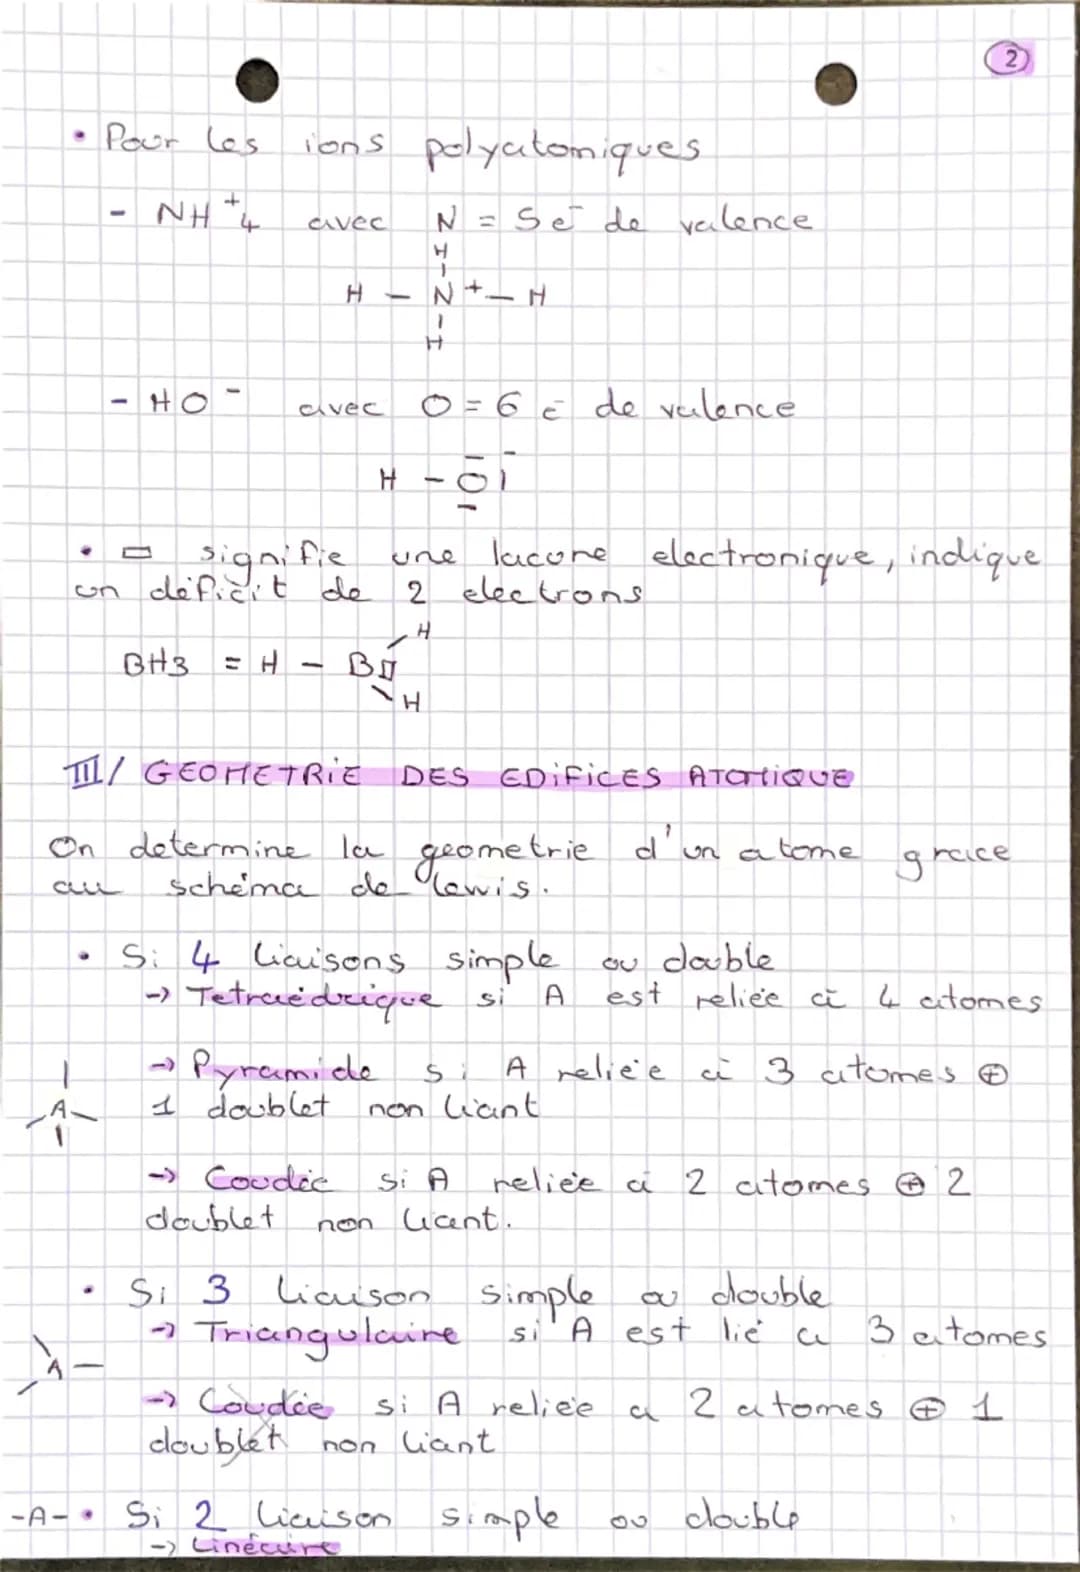 2
• Pour les ions polyatomiques
- NH⁺4 avec N = 5e⁻ de valence
H
H - N⁺ - H
H
- HO⁻ avec O = 6 e⁻ de valence
H - O⁻
• ▭ signifie une lacune electronique, indique
un déficit de 2 electrons
H
BH3 = H - B▯
H
III/ GEOMETRIE DES EDIFICES ATOMIQUE
On determine la geometrie d'un atome grace
au schéma de lewis.
• Si 4 liaisons simple ou double
→ Tetraédrique si A est reliée à 4 atomes
→ Pyramide si A reliée à 3 atomes ⊕
A 1 doublet non liant
→ Coudée si A reliée à 2 atomes ⊕ 2
doublet non liant.
• Si 3 liaison simple ou double
→ Triangulaire si A est lié a 3 atomes
A
→ Coudée si A reliée a 2 atomes ⊕ 1
doublet non liant
-A- • Si 2 liaison simple ou double
→ Linéaire